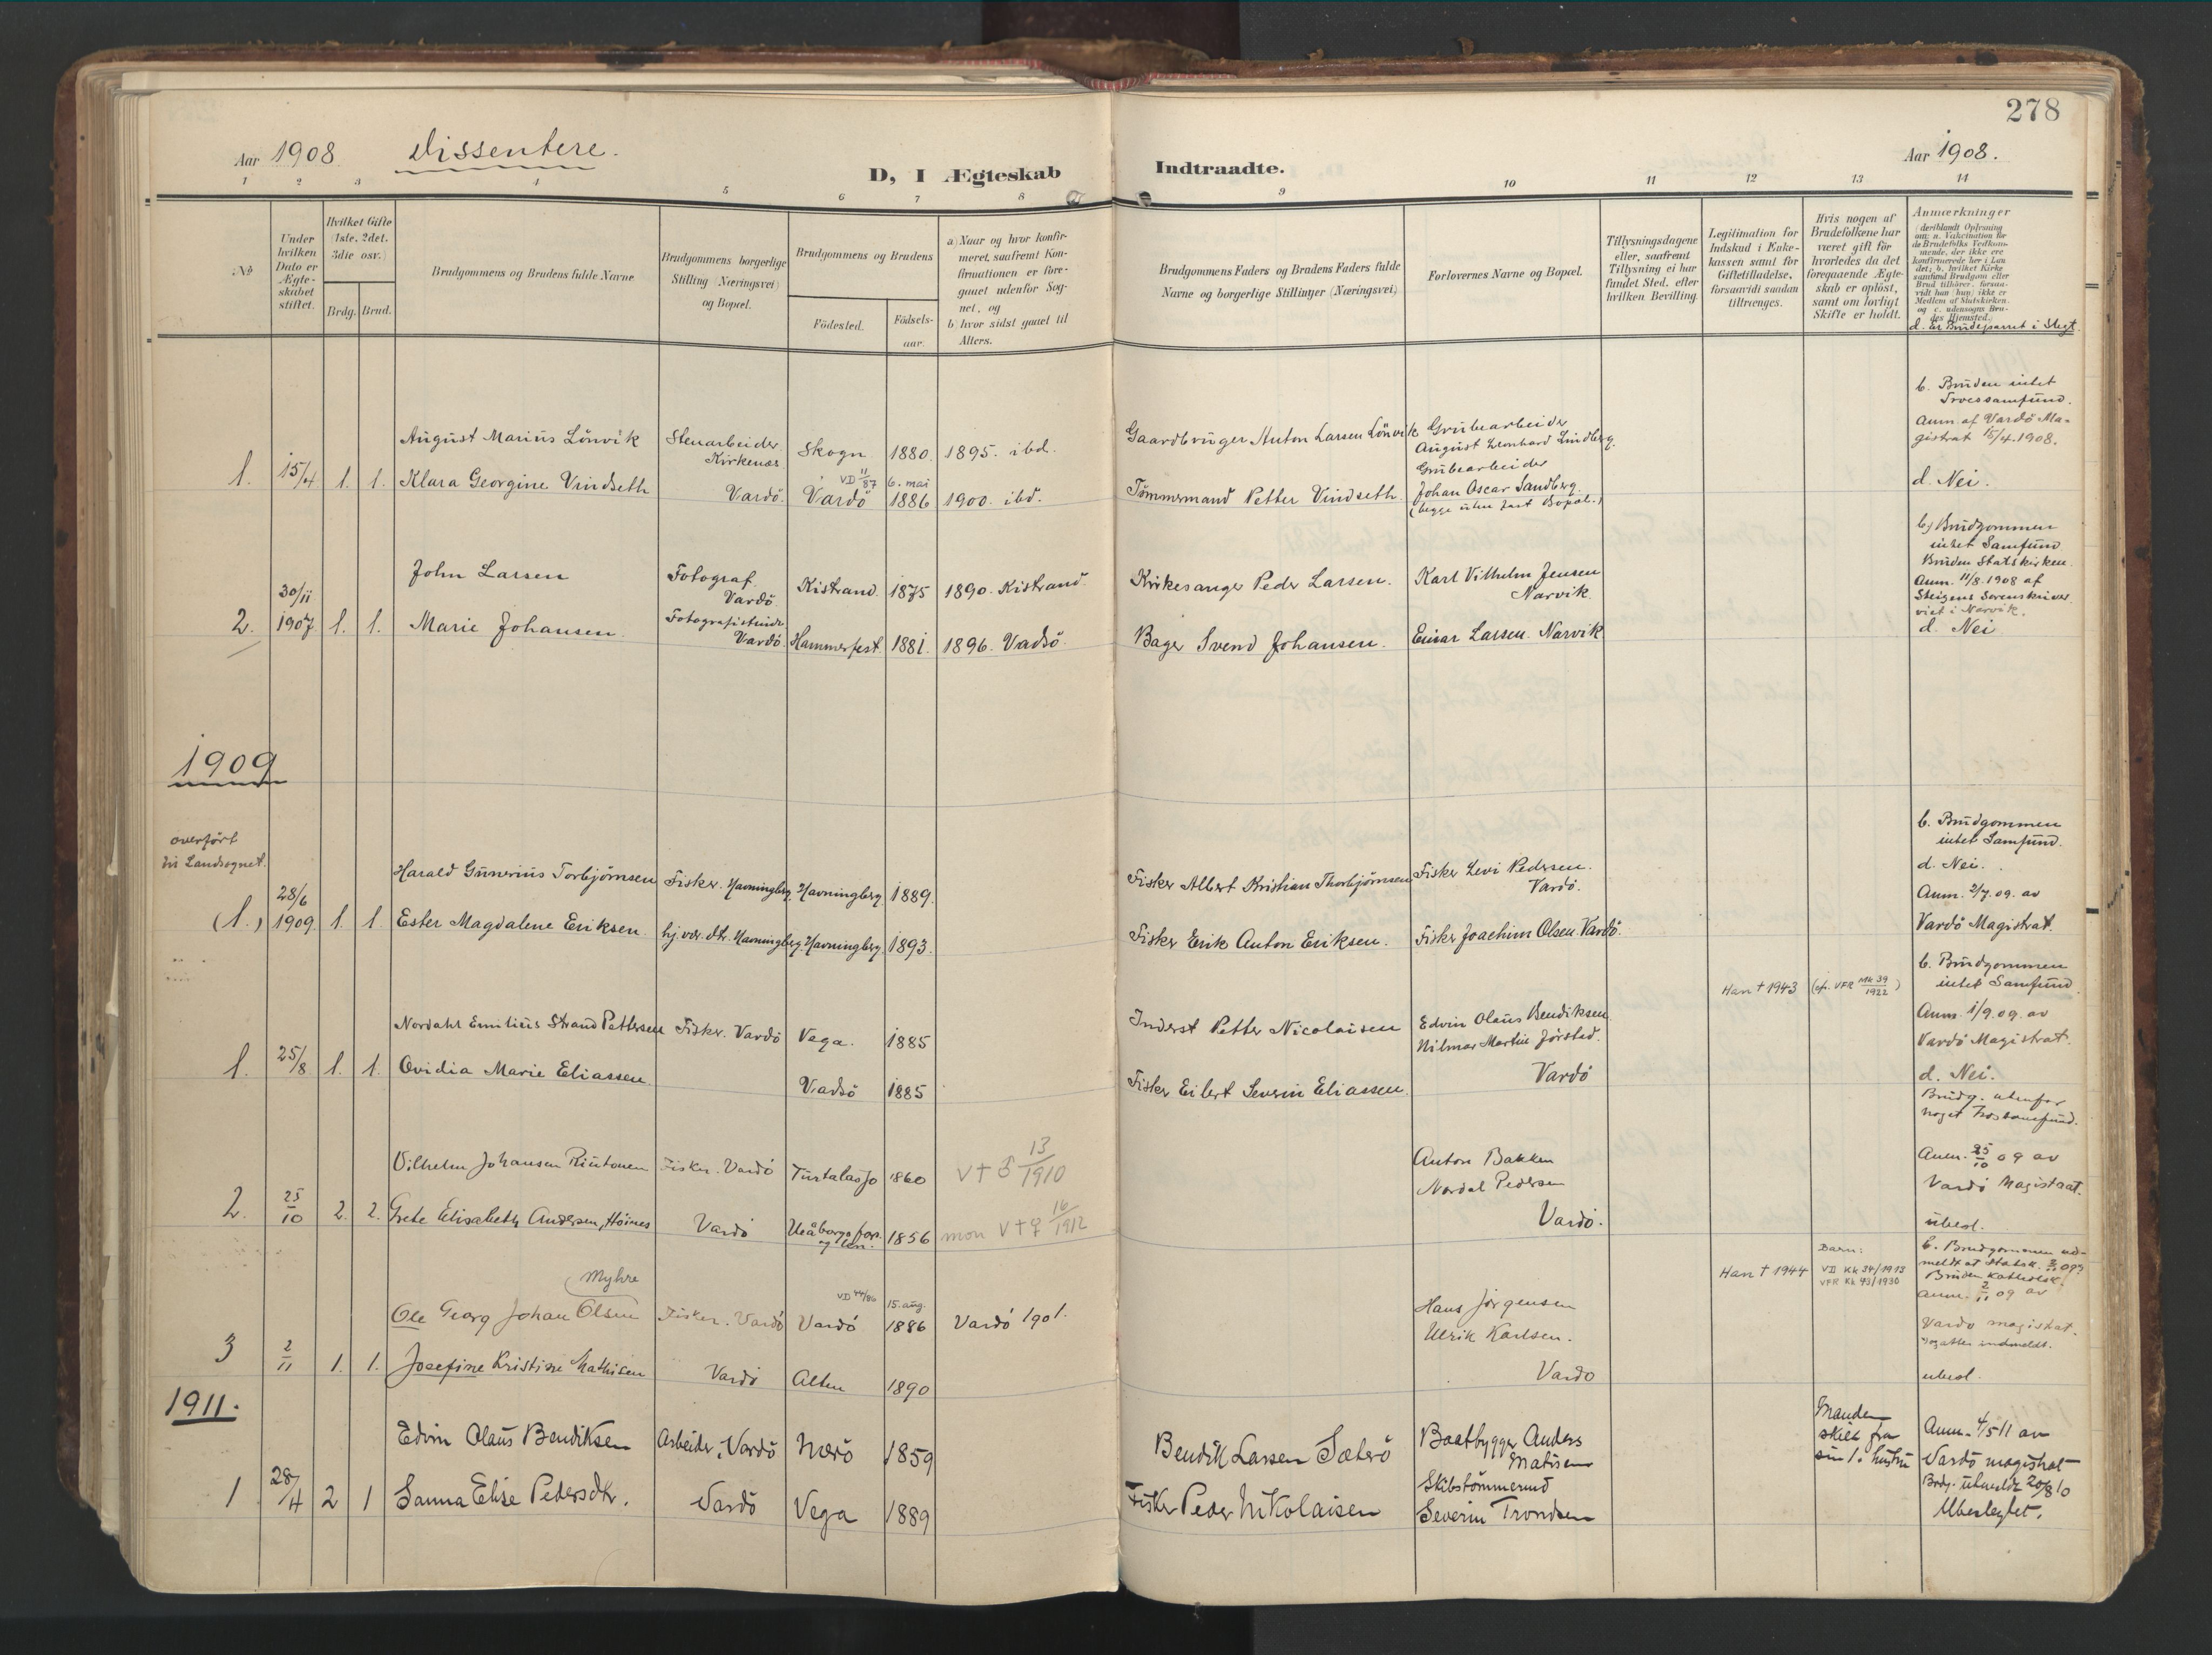 278
Aar 1908
Dissentere.
D, I Ægteskab
Indtraadte.
Aar 1908.
1 2 3 4 5 6 7 8 9 10 11 12 13 14
No
Under hvilken Dato er Ægteskabet stiftet.
Hvilket Gifte (1ste, 2det, 3die osv.)
Brdg. Brud.
Brudgommens og Brudens fulde Navne
Brudgommens borgerlige Stilling (Næringsvei) og Bopæl.
Brudgommens og Brudens
Födested.
Födsels-aar.
a) Naar og hvor konfirmeret, saafremt Konfirmationen er foregaaet udenfor Sognet, og
b) hvor sidst gaaet til Alters.
Brudgommens Faders og Brudens Faders fulde Navne og borgerlige Stillinger (Næringsvei)
Forlovernes Navne og Bopæl.
Tillysningsdagene eller, saafremt Tillysning ei har fundet Sted, efter hvilken Bevilling.
Legitimation for Indskud i Enkekassen samt for Giftetilladelse, forsaavidt saadan tiltrænges.
Hvis nogen af Brudefolkene har været gift för hvorledes da det foregaaende Ægteskab er oplöst, samt om lovligt Skifte er holdt.
Anmærkninger
(deriblandt Oplysning om: a. Vakcination for de Brudefolks Vedkommende, der ikke ere konfirmerede her i Landet; b. hvilket Kirkesamfund Brudgom eller Brud tilhörer, forsaavidt han (hun) ikke er Medlem af Statskirken, og c. udensogns Brudes Hjemsted.)
d. Er Brudeparret i Slegt.
1. 15/4 1. 1.
August Marius Lönvik
Stenarbeider Kirkenæs
Skogn 1880. 1895. ibd.
Gaardbruger Anton Larsen Lönvik
Grubearbeider
August Leonhard Lindberg.
Klara Georgine Vindseth
Vardö.
VD 11/87 6. mai
Vardö 1886 1900. ibd.
Tömmermand Petter Vindseth.
Grubearbeider
Johan Oscar Sandberg.
(begge uten fast Bopæl.)
b. Bruden intet
Troessamfund.
Anm. af Vardö Ma-
gistrat 15/4.1908.
d. Nei.
2. 30/11 1907 1. 1.
John Larsen
Fotograf Vardö
Kistrand 1875 1890. Kistrand.
Kirkesanger Peder Larsen.
Karl Vilhelm Jensen
Narvik.
Marie Johansen
Fotografistinde Vardö.
Hammerfest 1881. 1896. Vadsö.
Bager Svend Johansen.
Einar Larsen. Narvik
b) Brudgommen
intet Samfund
Bruden Statskirken.
Anm. 11/8.1908 af
Steigens Sorenskriver
viet i Narvik.
d. Nei
1909
overført
til Landsognet.
(1.) 28/6 1909 1. 1.
Harald Gunerius Torbjörnsen
Fisker. Havningberg.
Havningberg. 1889.
Fisker Albert Kristian Thorbjörnsen
Fisker Levi Pedersen.
Vardö.
Ester Magdalene Eriksen.
hj.vær. dtr. Havningberg.
Havningberg. 1893.
Fisker Erik Anton Eriksen.
Fisker Joachim Olsen. Vardö.
b. Brudgommen
intet Samfund.
d. Nei.
Anm. 2/7.09. av
Vardö Magistrat.
1. 25/8 1. 1.
Nordahl Emilius Strand Pettersen
Fisker. Vardö
Vega. 1885
Inderst Petter Nicolaisen
Edvin Olaus Bendiksen
Hilmar Martin Jörsted.
Vardö
Han † 1943
(cfr. VFR Mk 39/1922)
Ovidia Marie Eliassen.
Vadsö 1885
Fisker Eilert Severin Eliassen.
b. Brudgommen
intet Samfund
Anm. 1/9.09. av
Vardö Magistrat.
d. Nei.
2. 25/10 2. 2.
Vilhelm Johansen Rintonen
Fisker. Vardö
1860
V † ♂ 13/1910
Anton Bakken
Nordal Pedersen
Vardö.
Grete Elisabeth Andersen, Höines
Vardö
1856
mon V † ♀ 16/1912
Brudg. utenfor
noget Trossamfund.
Anm. 25/10 09 av
Vardö Magistrat.
ubesl.
3 2/11 1. 1.
Myhre
Ole Georg Johan Olsen
Fisker. Vardö
VD 44/86 15. aug.
Vardö 1886 Vardö 1901.
Hans Jörgensen
Ulrik Karlsen.
Vardö
Han † 1944
Barn:
VD Kk 34/1913
VFR Kk 43/1930
Josefine Kristine Mathisen
Vardö
Alten 1890
b. Brudgommen ud-
meldt af Statsk.
Bruden katholsk.
Anm. 2/11 09 av
Vardö magistrat.
ubesl.
1911.
1 28/4 2 1
Edvin Olaus Bendiksen
Arbeider, Vardö
Nærö 1859
Bendik Larsen Sæterö
Baatbygger Anders
Matisen
Sanna Elise Pedersdtr.
Vardö
Vega 1889
Fisker Peder Nikolaisen
Skibstömmermd
Severin Trondsen
Manden
skilt fra
sin 1. hustru
Anm. 4/5 11 av
Vardö magistrat
Brdg. utmeldt 20/8 10
Ubeslegtet.